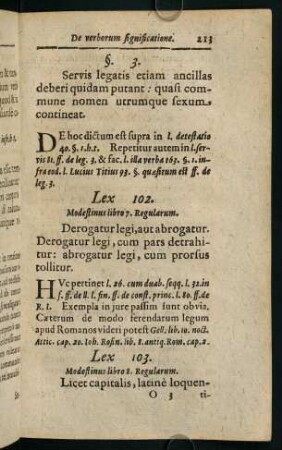 De verborum significatione. 213
§. 3.
Servis legatis etiam ancillas
deberi quidam putant: quasi com-
mune nomen utrumque sexum
contineat.
DE hoc dictum est supra in l. detestatio
40. §. 1. h. t. Repetitur autem in l. ser-
vis 81. ff. de leg. 3. & fac. l. illa verba 163. §. 1. in-
fra eod. l. Lucius Titius 93. §. quæsitum est ff. de
leg. 3.
Lex 102.
Modestinus libro 7. Regularum.
Derogatur legi, aut abrogatur.
Derogatur legi, cum pars detrahi-
tur: abrogatur legi, cum prorsus
tollitur.
HVc pertinet l. 26. cum duab. seqq. l. 32. in
f. ff. de ll. l. fin. ff. de const. princ. l. 80. ff. de
R. I. Exempla in jure passim sunt obvia,
Cæterum de modo ferendarum legum
apud Romanos videri potest Gell. lib. 10. noct.
Attic. cap. 20. Ioh. Rosin. lib. 8. antiq. Rom. cap. 2.
Lex 103.
Modestinus libro 8. Regularum.
Licet capitalis, latinè loquen-
O 3 ti-